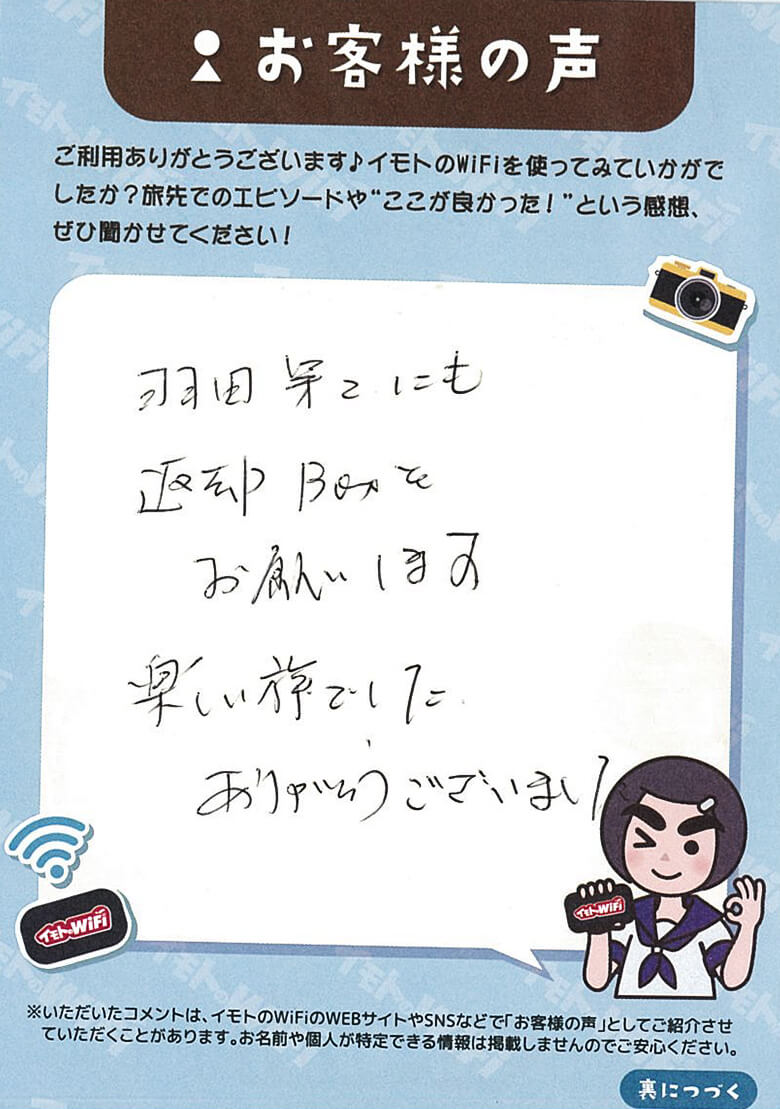 お客様の声
ご利用ありがとうございます♪イモトのWiFiを使ってみていかがで
したか？旅先でのエピソードや“ここが良かった！”という感想、
ぜひ聞かせてください！
羽田 第2にも
返却Boxを
お願いします
楽しい旅でした
ありがとうございまし
イモトのWiFi
イモトのWiFi
※いただいたコメントは、イモトのWiFiのWEBサイトやSNSなどで「お客様の声」としてご紹介させ
ていただくことがあります。お名前や個人が特定できる情報は掲載しませんのでご安心ください。
裏につづく